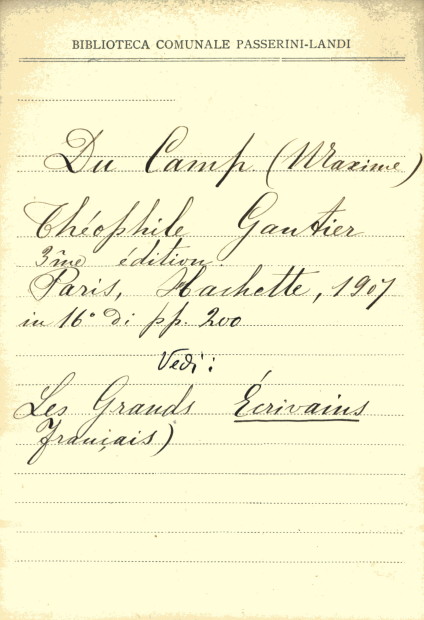 BIBLIOTECA COMUNALE PASSERINI-LANDI
Du Camp (Maxime)
Théophile Gautier
3ème édition
Paris, Hachette, 1907
in 16° di pp. 200
Vedi:
Les Grands Écrivains
français)